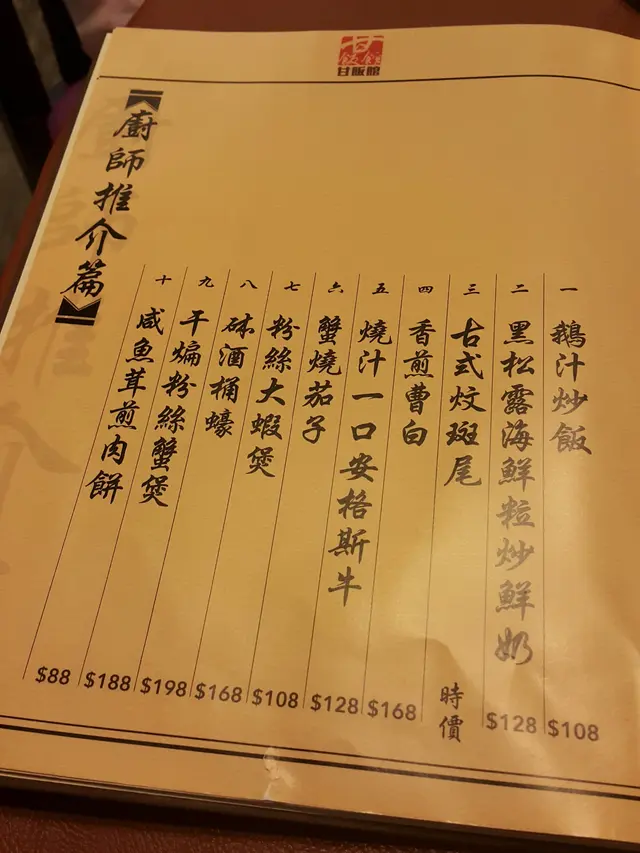 甘飯館
甘飯館
廚師推介篇
一 鵝汁炒飯 $108
二 黑松露海鮮粒炒鮮奶 $128
三 古式炆斑尾 時價
四 香煎曹白 $168
五 燒汁一口安格斯牛 $128
六 蟹燒茄子 $108
七 粉絲大蝦煲 $168
八 砵酒桶蠔 $198
九 干煸粉絲蟹煲 $188
十 咸魚茸煎肉餅 $88